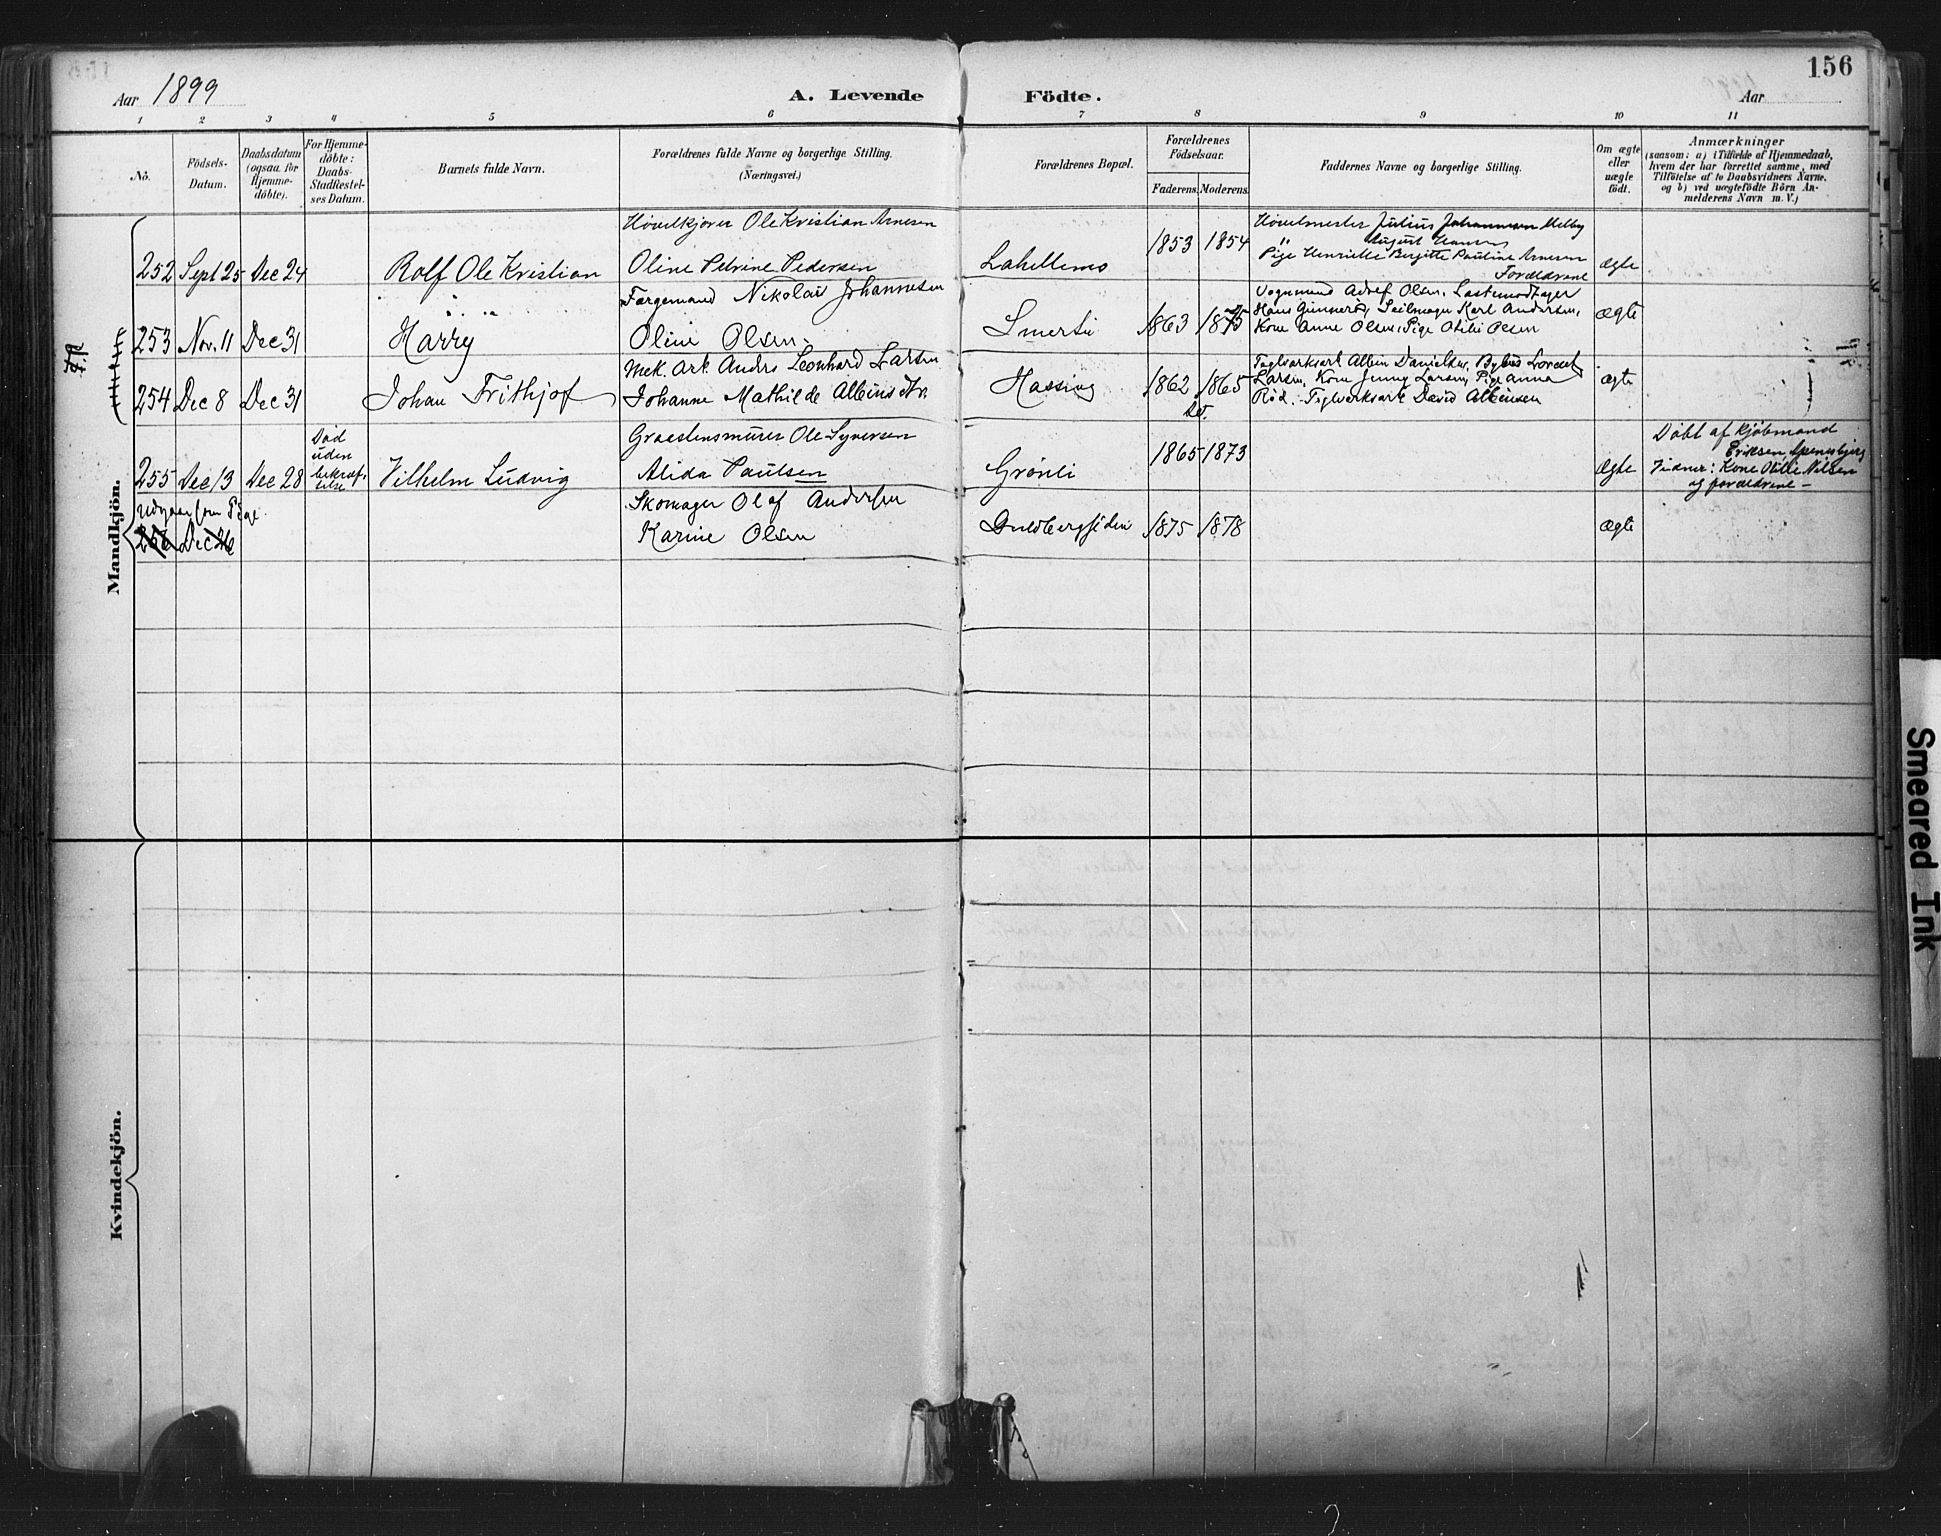 156
Aar 1899
A. Levende Födte.
Aar
1 2 3 4 5 6 7 8 9 10 11
No.
Födsels-
Datum.
Daabsdatum
(ogsaa for
Hjemme-
döbte).
For Hjemme-
döbte:
Daabs-
Stadfæstel-
ses Datum.
Barnets fulde Navn.
Forældrenes fulde Navne og borgerlige Stilling.
(Næringsvei.)
Forældrenes Bopæl.
Forældrenes
Födselsaar.
Faderens. Moderens.
Faddernes Navne og borgerlige Stilling.
Om ægte
eller
uægte
födt.
Anmærkninger
(saasom: a) i Tilfælde af Hjemmedaab,
hvem der har forrettet samme, med
Tilföielse af to Daabsvidners Navne,
og b) ved uægtefödte Börn An-
melderens Navn m. V.)
Mandkjön.
Høvelkjører Ole Kristian Arnesen
252 Sept 25 Dec 24 Rolf Ole Kristian Oline Petrine Pedersen
Lahellemo 1853 1854
Høvelmester Julius Johannesen Melby
" August Hansen
Pige Henriette Birgitte Pauline Arnesen
Forældrene
ægte
Færgemand Nikolai Johannesen
253 Nov. 11 Dec 31 Harry Oline Olsen
Smertu 1863 1875
Vognmand Adolf Olsen, Lastemodtager
Hans Gunnerød, Seilmager Karl Andersen,
Kone Anne Olsen, Pige Otilie Olsen
ægte
Mek. Arb. Anders Leonhard Larsen
254 Dec 8 Dec 31 Johan Frithjof Johanne Mathilde Albinsdtr.
Hassing 1862 1865
Teglverksarb Albin Danielsen, Bybud Lorentz
Larsen, Kone Jenny Larsen, Pige Anna
Rød. Teglverksarb David Albinsen
ægte
Graastensmurer Ole Syversen
255 Dec 13 Dec 28
Død
uden
bekræf-
telse
Vilhelm Ludvig Alida Paulsen
Grønli 1865 1873
ægte
Døbt af Kjøbmand
Eriksen, Spenesbjerg
Vidner: Kone Otilie Nilsen
og forældrene –
Udgaar som Pige
256 Dec 26
Skomager Olaf Andersen
Karine Olsen
1875 1878
ægte
Kvindekjön.
Smeared Ink